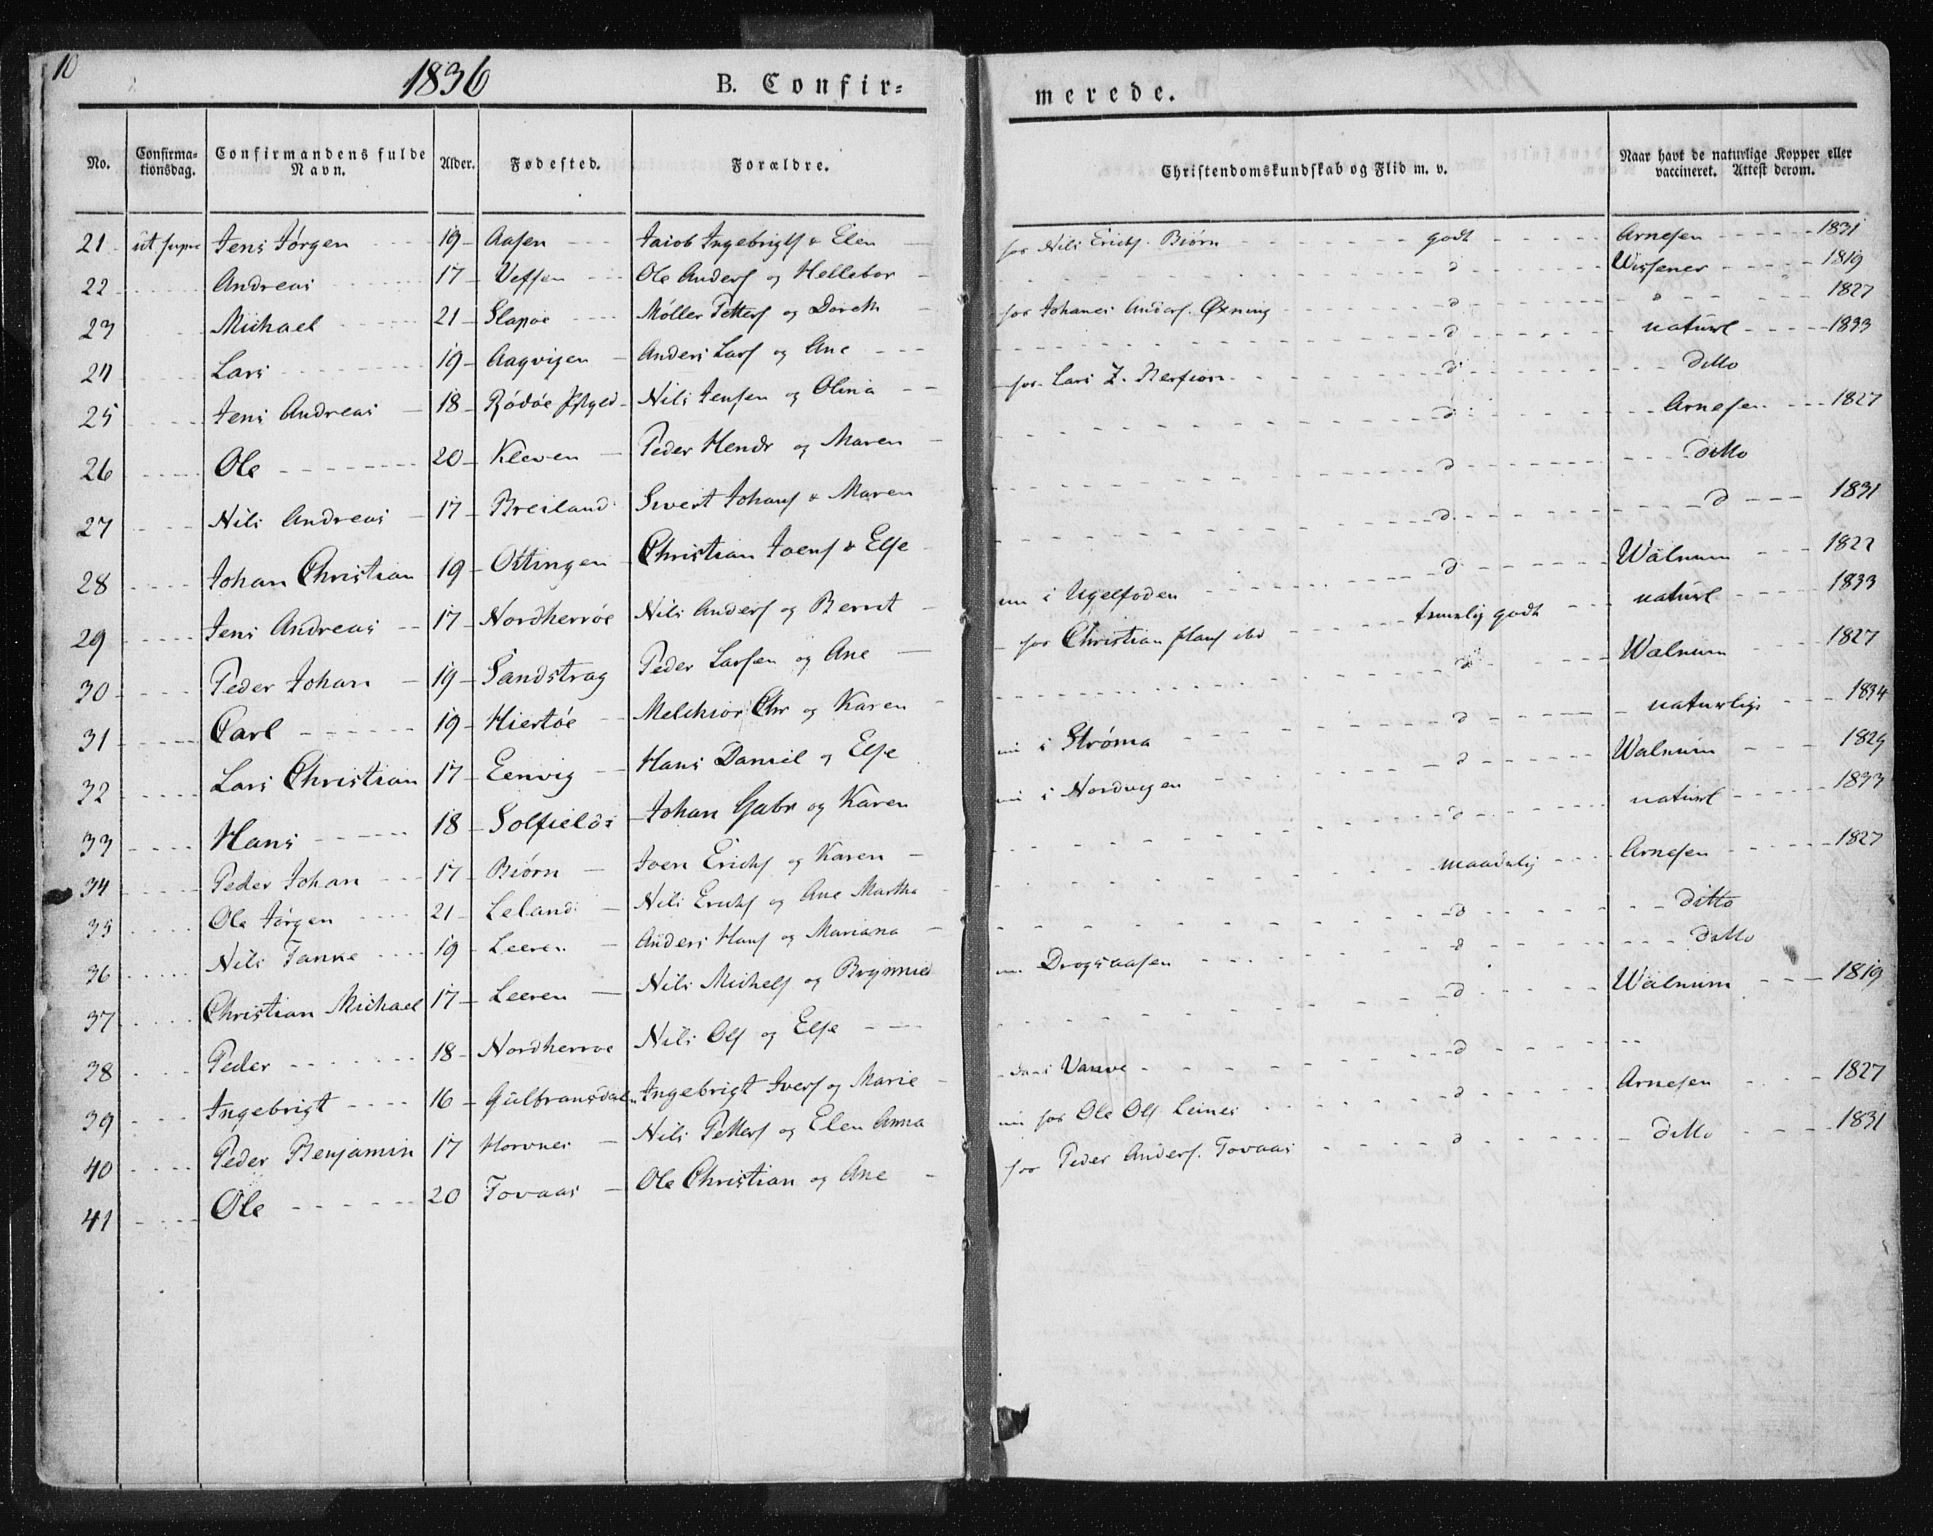 10
1836
B. Confir-
merede.
No. Confirma-tionsdag. Confirmandens fulde Navn. Alder. Fødested. Forældre. Christendomskundskab og Flid m. v. Naar havt de naturlige Kopper eller vaccineret. Attest derom.
21 ut supra Jens Jørgen 19 Aasen Jacob Ingebrigts & Elen for Nils Erichs. Biørn godt Arnesen 1831
22 Andreas 17 Vefsen Ole Anders og Hellebor d Wissener 1819
23 Michael 21 Slapøe Møller Petters og Doreth for Johanes Anders. Øxning d " 1827
24 Lars 19 Aagvigen Anders Lars og Ane d naturl 1833
25 Jens Andreas 18 Rødøe Nils Jensen og Olina for Lars Z. d ditto
26 Ole 20 Kleven Peder Hendr og Maren d Arnesen 1827
27 Nils Andreas 17 Breiland Sivert Johans & Maren d ditto
28 Johan Christian 19 Ottingen Christian Joens & Else d d 1831
29 Jens Andreas 17 Nordherrøe Nils Anders og Bernt i Ugelfoden d Walnum 1822
30 Peder Johan 19 Sandstrag Peder Larsen og Ane for Christian temelig godt naturl 1833
31 Carl 19 Hiertøe Melchior Chr og Karen d Walnum 1827
32 Lars Christian 17 Eenvig Hans Daniel og Else i Strøma d naturlige 1834
33 Hans 18 Solfields Johan Gabr og Karen i Nordvigen d Walnum 1829
34 Peder Johan 17 Biørn Joen Erichs og Karen d naturl 1833
35 Ole Jørgen 21 Leland Nils Erichs og Ane Martha maadelig Arnesen 1827
36 Nils Tanke 19 Leeren Anders Hans og Mariana d ditto
37 Christian Michael 17 Leeren Nils Michels og Drogsaasen d ditto
38 Peder 18 Nordherroe Nils Ols og Else d Walnum 1819
39 Ingebrigt 16 Gulbransdalen Ingebrigt Ivers og Marie d
40 Peder Benjamin 17 Horvnes Nils Petters og Elen Anna for Ole Ols. Leines d Arnesen 1827
41 Ole 20 Tovaas Ole Christian og Ane for Peder Anders. Tovaas d ditto 1831